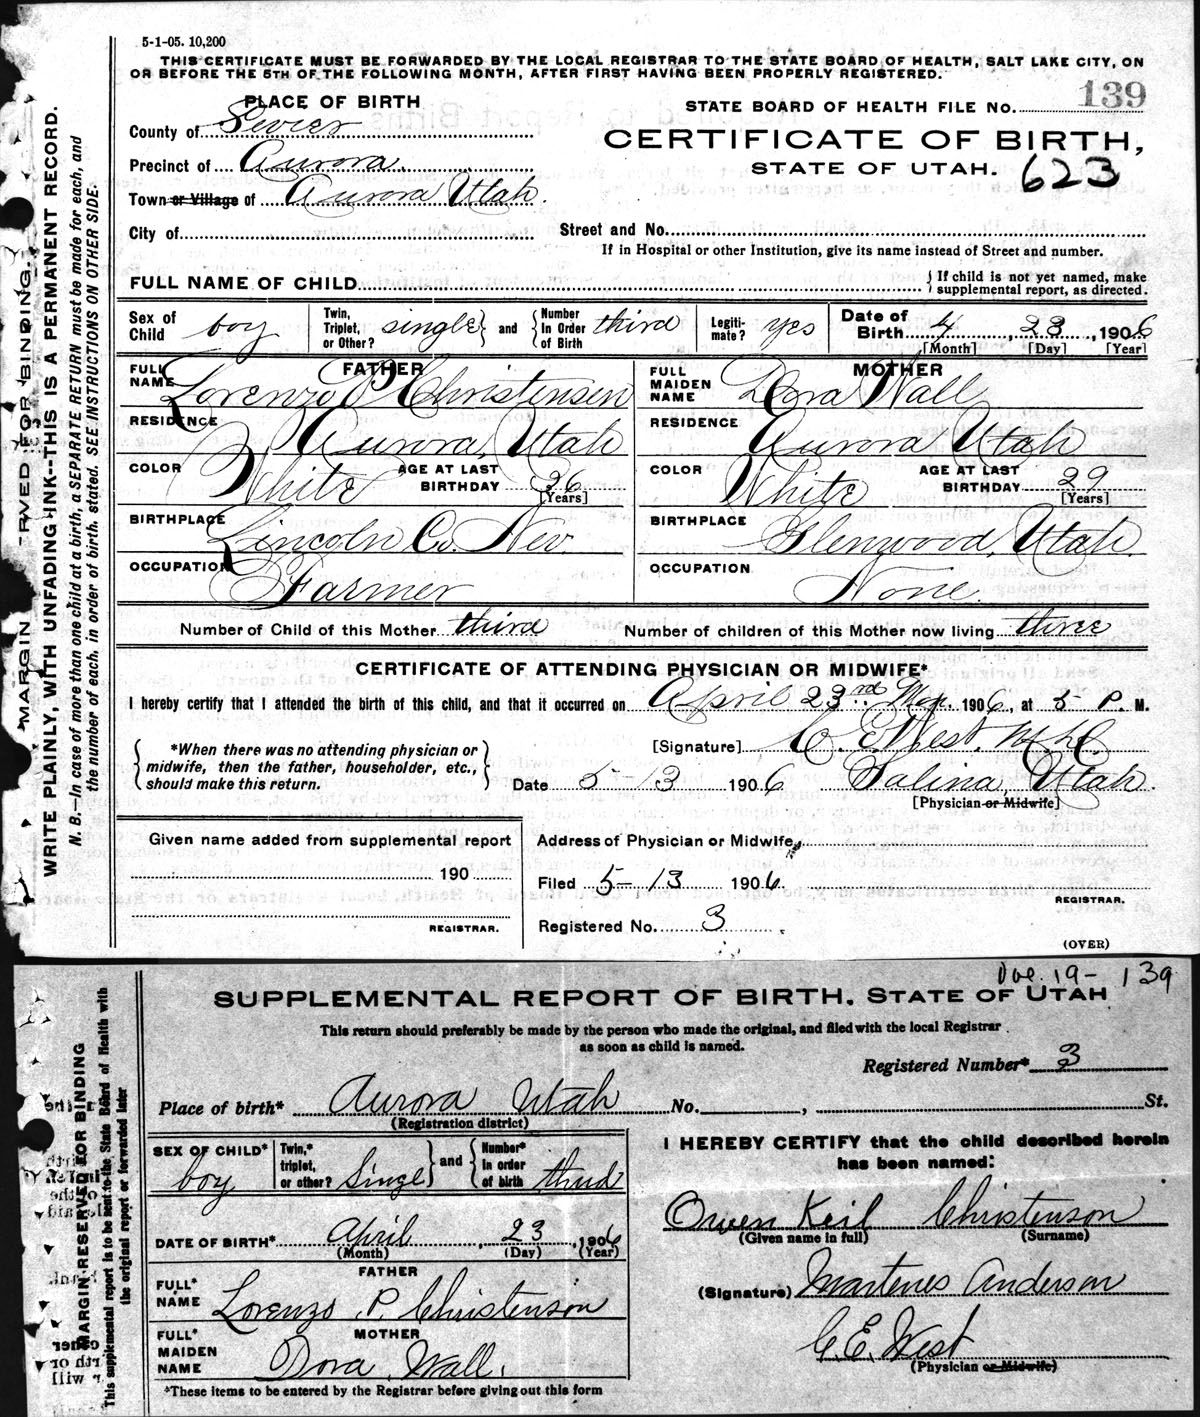 5-1-05. 10,200
THIS CERTIFICATE MUST BE FORWARDED BY THE LOCAL REGISTRAR TO THE STATE BOARD OF HEALTH, SALT LAKE CITY, ON
OR BEFORE THE 5TH OF THE FOLLOWING MONTH, AFTER FIRST HAVING BEEN PROPERLY REGISTERED.
PLACE OF BIRTH
STATE BOARD OF HEALTH FILE NO. 139
County of Sevier
CERTIFICATE OF BIRTH,
Precinct of Aurora
STATE OF UTAH. 623
Town or Village of Aurora Utah.
City of
Street and No.
If in Hospital or other Institution, give its name instead of Street and number.
FULL NAME OF CHILD
{ If child is not yet named, make
supplemental report, as directed.
Sex of Child boy
Twin, Triplet, or Other? single } and { Number In Order of Birth third
Legitimate? yes
Date of Birth 4, 23, 1906
[Month] [Day] [Year]
FATHER
FULL NAME Lorenzo P Christensen
RESIDENCE Aurora, Utah
COLOR White AGE AT LAST BIRTHDAY 36 [Years]
BIRTHPLACE Lincoln Co. Nev.
OCCUPATION Farmer
MOTHER
FULL MAIDEN NAME Dora Wall
RESIDENCE Aurora Utah
COLOR White AGE AT LAST BIRTHDAY 29 [Years]
BIRTHPLACE Glenwood, Utah.
OCCUPATION None.
Number of Child of this Mother third Number of children of this Mother now living three
CERTIFICATE OF ATTENDING PHYSICIAN OR MIDWIFE*
I hereby certify that I attended the birth of this child, and that it occurred on April 23rd 1906, at 5 P. M.
{ *When there was no attending physician or
midwife, then the father, householder, etc.,
should make this return. }
[Signature] C. E. West, M.D.
Date 5-13 1906 Salina, Utah.
[Physician or Midwife]
Given name added from supplemental report
190
REGISTRAR.
Address of Physician or Midwife
Filed 5-13 1906.
REGISTRAR.
Registered No. 3
(OVER)
MARGIN RESERVED FOR BINDING.
WRITE PLAINLY, WITH UNFADING INK--THIS IS A PERMANENT RECORD.
N. B.—In case of more than one child at a birth, a SEPARATE RETURN must be made for each, and
the number of each, in order of birth, stated. SEE INSTRUCTIONS ON OTHER SIDE.
19- 139
SUPPLEMENTAL REPORT OF BIRTH, STATE OF UTAH
This return should preferably be made by the person who made the original, and filed with the local Registrar
as soon as child is named.
Registered Number* 3
Place of birth* Aurora Utah No. , St.
(Registration district)
SEX OF CHILD* boy
Twin,* triplet, or other? Singe } and { Number* in order of birth third
DATE OF BIRTH* April, 23, 1906
(Month) (Day) (Year)
FATHER
FULL* NAME Lorenzo P. Christenson
MOTHER
FULL* MAIDEN NAME Dora Wall.
*These items to be entered by the Registrar before giving out this form
I HEREBY CERTIFY that the child described herein
has been named:
Owen Keil Christenson
(Given name in full) (Surname)
(Signature) Martenes Anderson
C. E. West
(Physician or Midwife)
MARGIN RESERVED FOR BINDING
This supplemental report is to be sent to the State Board of Health with
the original report or forwarded later